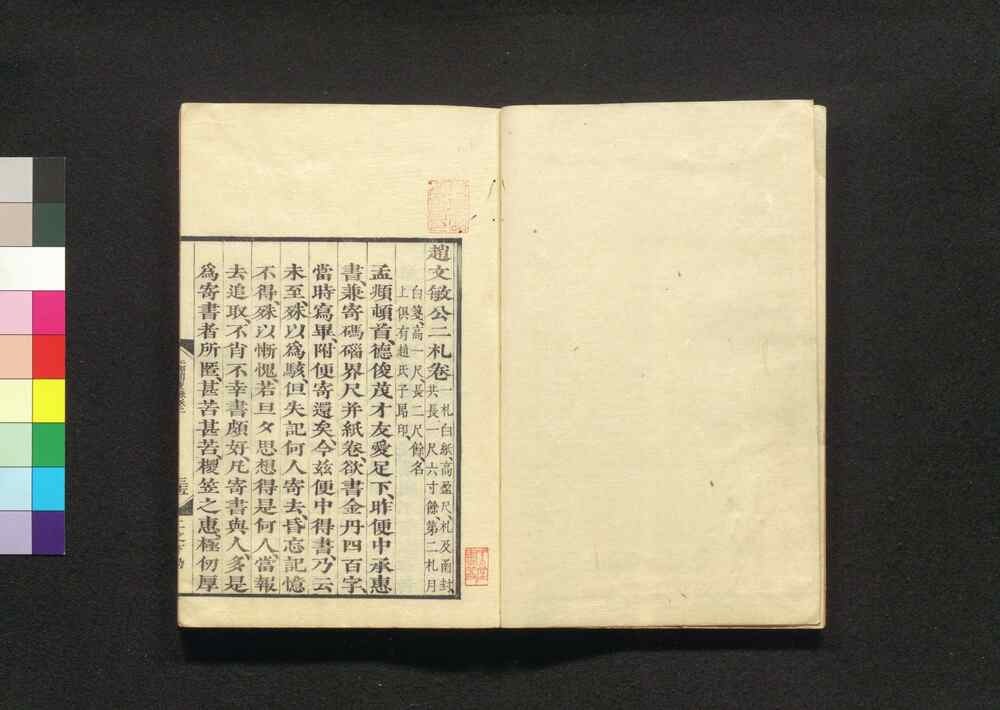 趙文敏公二札卷
一札白紙、高盈尺、札及甬封、
共長一尺六寸餘、第二札月
白箋、高一尺、長二尺餘、名
上俱有趙氏子昂印、
孟頫頓首、德俊茂才友愛足下、昨便中承惠
書兼寄碼碯界尺并紙卷、欲書金丹四百字、
當時寫畢、附便寄還矣、今茲便中得書、乃云
未至、殊以為駭、但失記何人寄去、昏忘記憶
不得、殊以慚愧、若旦夕思想得是何人、當報
去追取、不肖不幸書頗好、凡寄書與人、多是
為寄書者所匿、甚苦甚苦、椶笠之惠、極仞厚